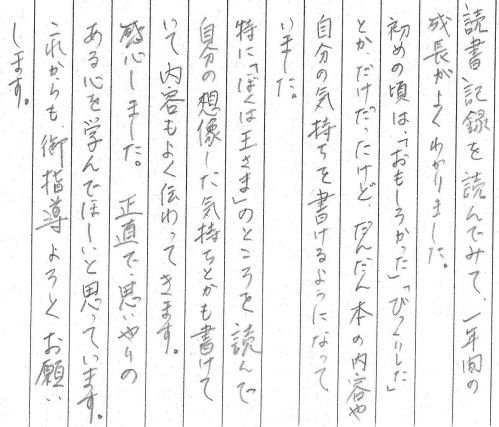 読書記録を読んでみて、一年間の
成長がよくわかりました。
初めの頃は、「おもしろかった」「びっくりした」
とか、だけだったけど、だんだん本の内容や
自分の気持ちを書けるようになって
いました。
特に「ぼくは王さま」のところを読んで
自分の想像した気持ちとかも書けて
いて内容もよく伝わってきます。
感心しました。 正直で、思いやりの
ある心を学んでほしいと思っています。
これからも、御指導よろしくお願い
します。